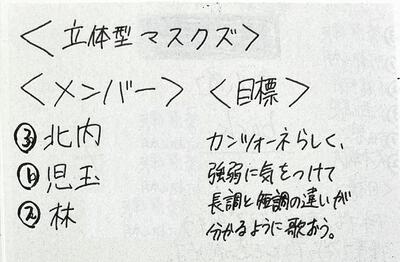 <立体型マスクズ>
<メンバー> <目標>
北内
児玉
林
カンツォーネらしく、
強弱に気をつけて
長調と短調の違いが
分かるように歌おう。